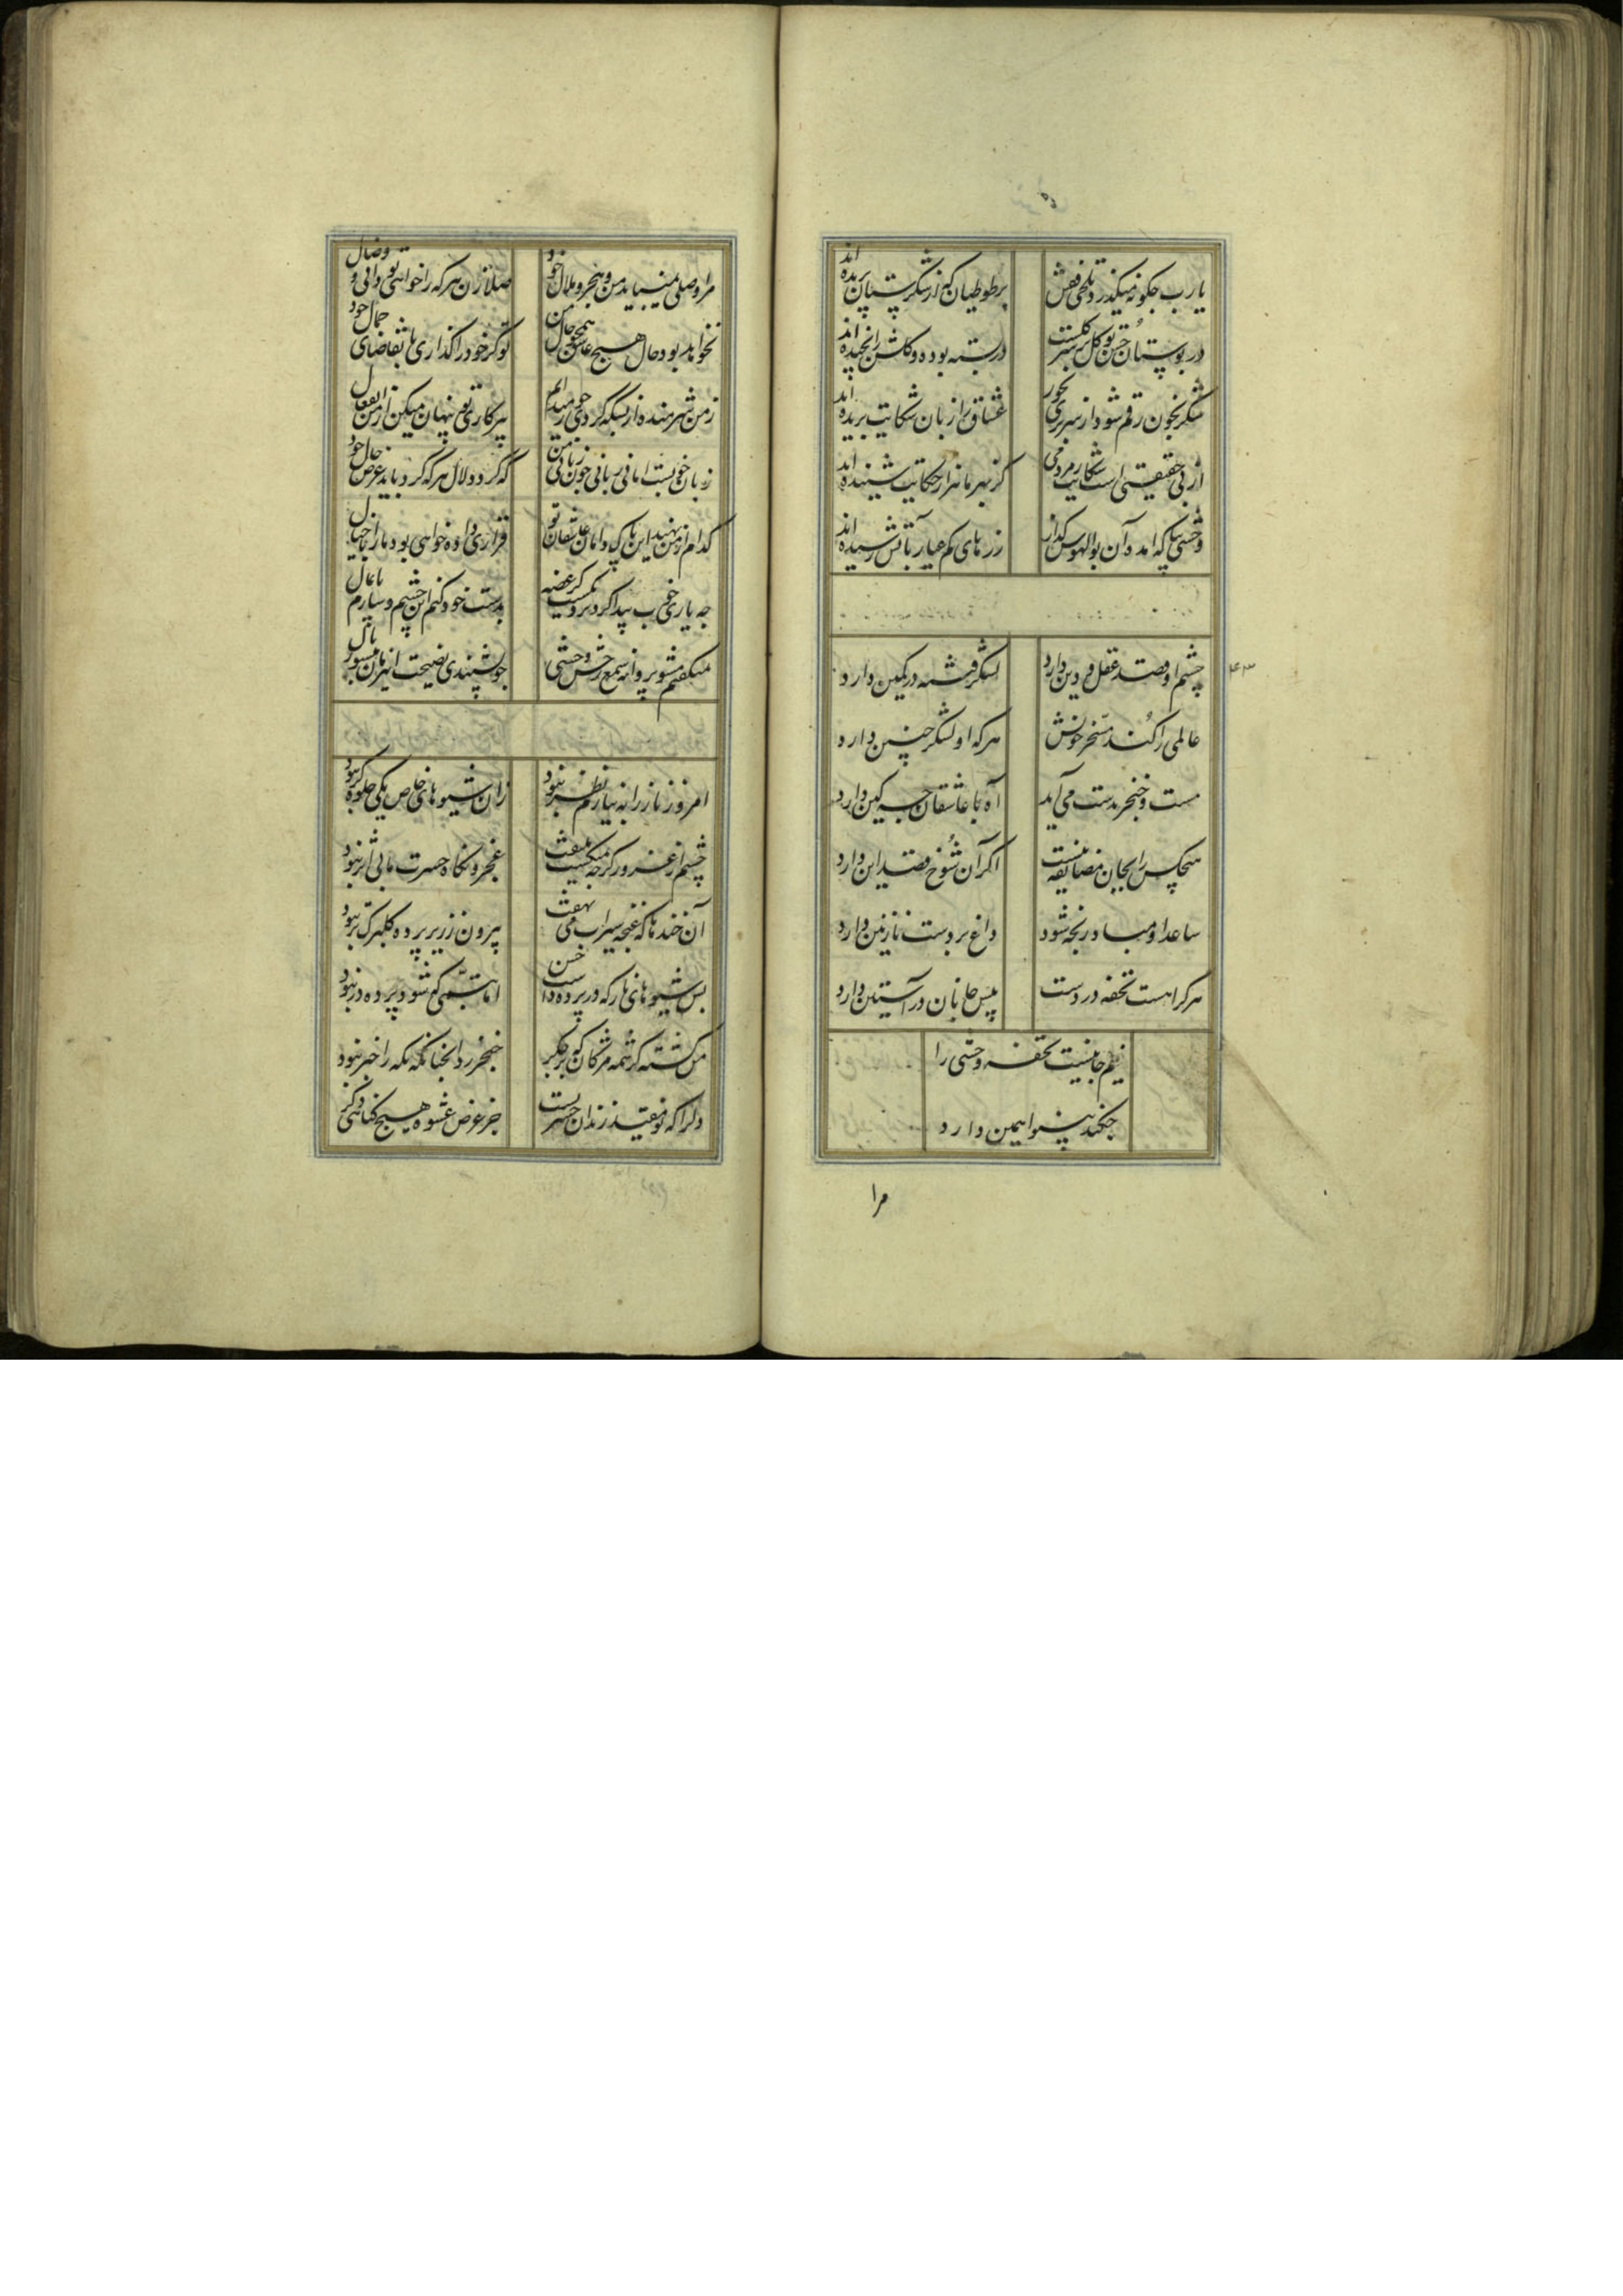 یارب چکونه میکذرد تلخی قفس
بر طوطیان که از شکرستان پریده اند
در بوستان حسن تو کل بر سر کلست
در بسته بوده و کلش را نچیده اند
شکر بخون رقم شود از سر بری بجور
عشاق را زبان شکایت بریده اند
از بی حقیقتی است شکایت ز مردمی
کز بهر ما هزار حکایت شنیده اند
وحشی بیا که آمده آن بوالهوس کداز
زرهای کم عیار بآتش رسیده اند
چشم او قصد عقل و دین دارد
لشکر فتنه در کمین دارد
عالمی را کند مسخر خویش
هر که او لشکر چنین دارد
مست و خنجر بدست می آید
آه با عاشقان چه کین دارد
هیچکس را بجان مضایقه نیست
اکر آن شوخ قصد این دارد
ساعد او مباد رنجه شود
داغ بر دست نازنین دارد
هر کرا هست تحفه در دست
پیش جانان در آستین دارد
نیم جانیست تحفه وحشی را
چکند بینوا همین دارد
مرا
مرا وصلی نمیباید من و هجر و ملال خود
صلا زن هر که را خواهی تو دانی و وصال خود
نخواهد بود حال هیچ عاشق همچو حال من
تو کر خود را کذاری با تقاضای جمال خود
ز من شرمنده از بسکه کردی جور میدانم
ز پرکاری تو پنهان میکنی از من انفعال
زبان خوبست اما بی زبانی چون زبان من
که کردد لال هر که کرد باید عرض حال خود
کدام از من نهند این پاک دامان عاشقان تو
قراری داده خواهی بود ما را با خیال
چه یاری خوب پیدا کرد نزدیکست کز غصه
بدست خود کنم این چشم و سازم پایمال
میکفتم مشو پروانه شمع رخش وحشی
چو نشنیدی نصیحت این زمان میسوز بال
امروز ناز را به نیازم نظر نبود
زان شیوهای خاص یکی جلوه کر نبود
چشم از غرور کر چه نمیکشت ملتفت
عجز و نکاه حسرت ما بی اثر نبود
آن خندها که غنچه سیراب می نهفت
بیرون ز زیر پرده کلبرک تر نبود
بس شیوهای ناز که در پرده داشت حسن
اما تبسمی که شود پرده در نبود
من کشته کرشمه مژکان که بر جکر
خنجر زد آنچنان که نکه را خبر نبود
دل را که نو مقید زندان حسرتست
جز عرض عشوه هیچ کناهی دکر